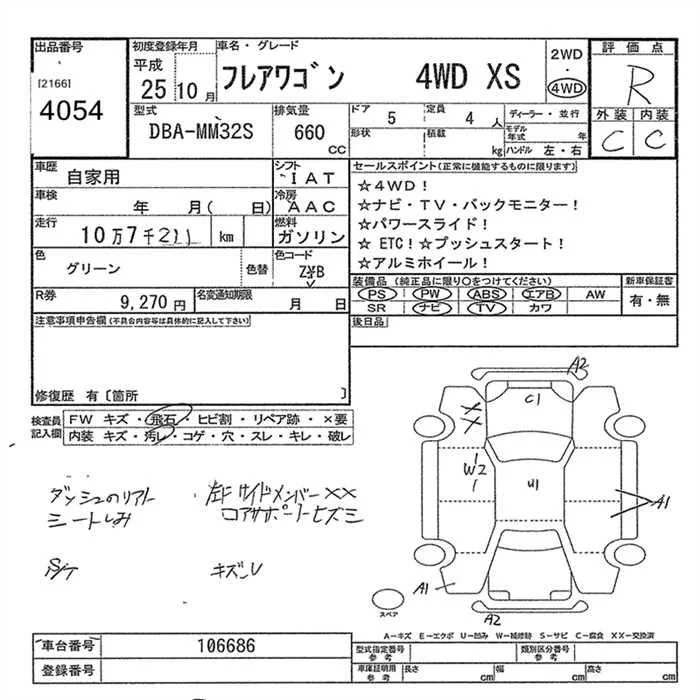 出品番号
[2166]
4054
初度登録年月
平成
25 10 月
車名・グレード
フレアワゴン 4WD XS
2WD
・
4WD
評価点
R
外装 内装
C C
型式
DBA-MM32S
排気量
660
CC
ドア 5
定員 4 人
形状
積載 kg
ディーラー・並行
モデル年式 年
ハンドル 左・右
車歴
自家用
シフト
IAT
車検
年 月( 日)
冷房
AAC
走行
10万7千211 km
燃料
ガソリン
色
グリーン
色替
色コード
ZYB
R券
9,270 円
名変通知期限
月 日
セールスポイント(正常に機能するものに限ります)
☆4WD!
☆ナビ・TV・バックモニター!
☆パワースライド!
☆ ETC!☆プッシュスタート!
☆アルミホイール!
装備品(純正品に限り○をつけてください)
PS PW ABS エアB AW
SR ナビ TV カワ
新車保証書
有・無
後日品
注意事項申告欄(不具合内容等は具体的に記入して下さい)
修復歴 有〔箇所 〕
検査員
記入欄
FW キズ・飛石・ヒビ割・リペア跡・×要
内装 キズ・汚レ・コゲ・穴・スレ・キレ・破レ
シートしみ
左F サイドメンバーXX
コアサポートヒズミ
A2
C1
XX
W2
U1
A1
A1
A2
スペア
A-キズ E-エクボ U-凹み W-補修跡 S-サビ C-腐食 XX-交換済
車台番号
106686
登録番号
型式指定番号
参考
類別区分番号
参考
車庫証明用
参考
長さ cm
幅 cm
高さ cm